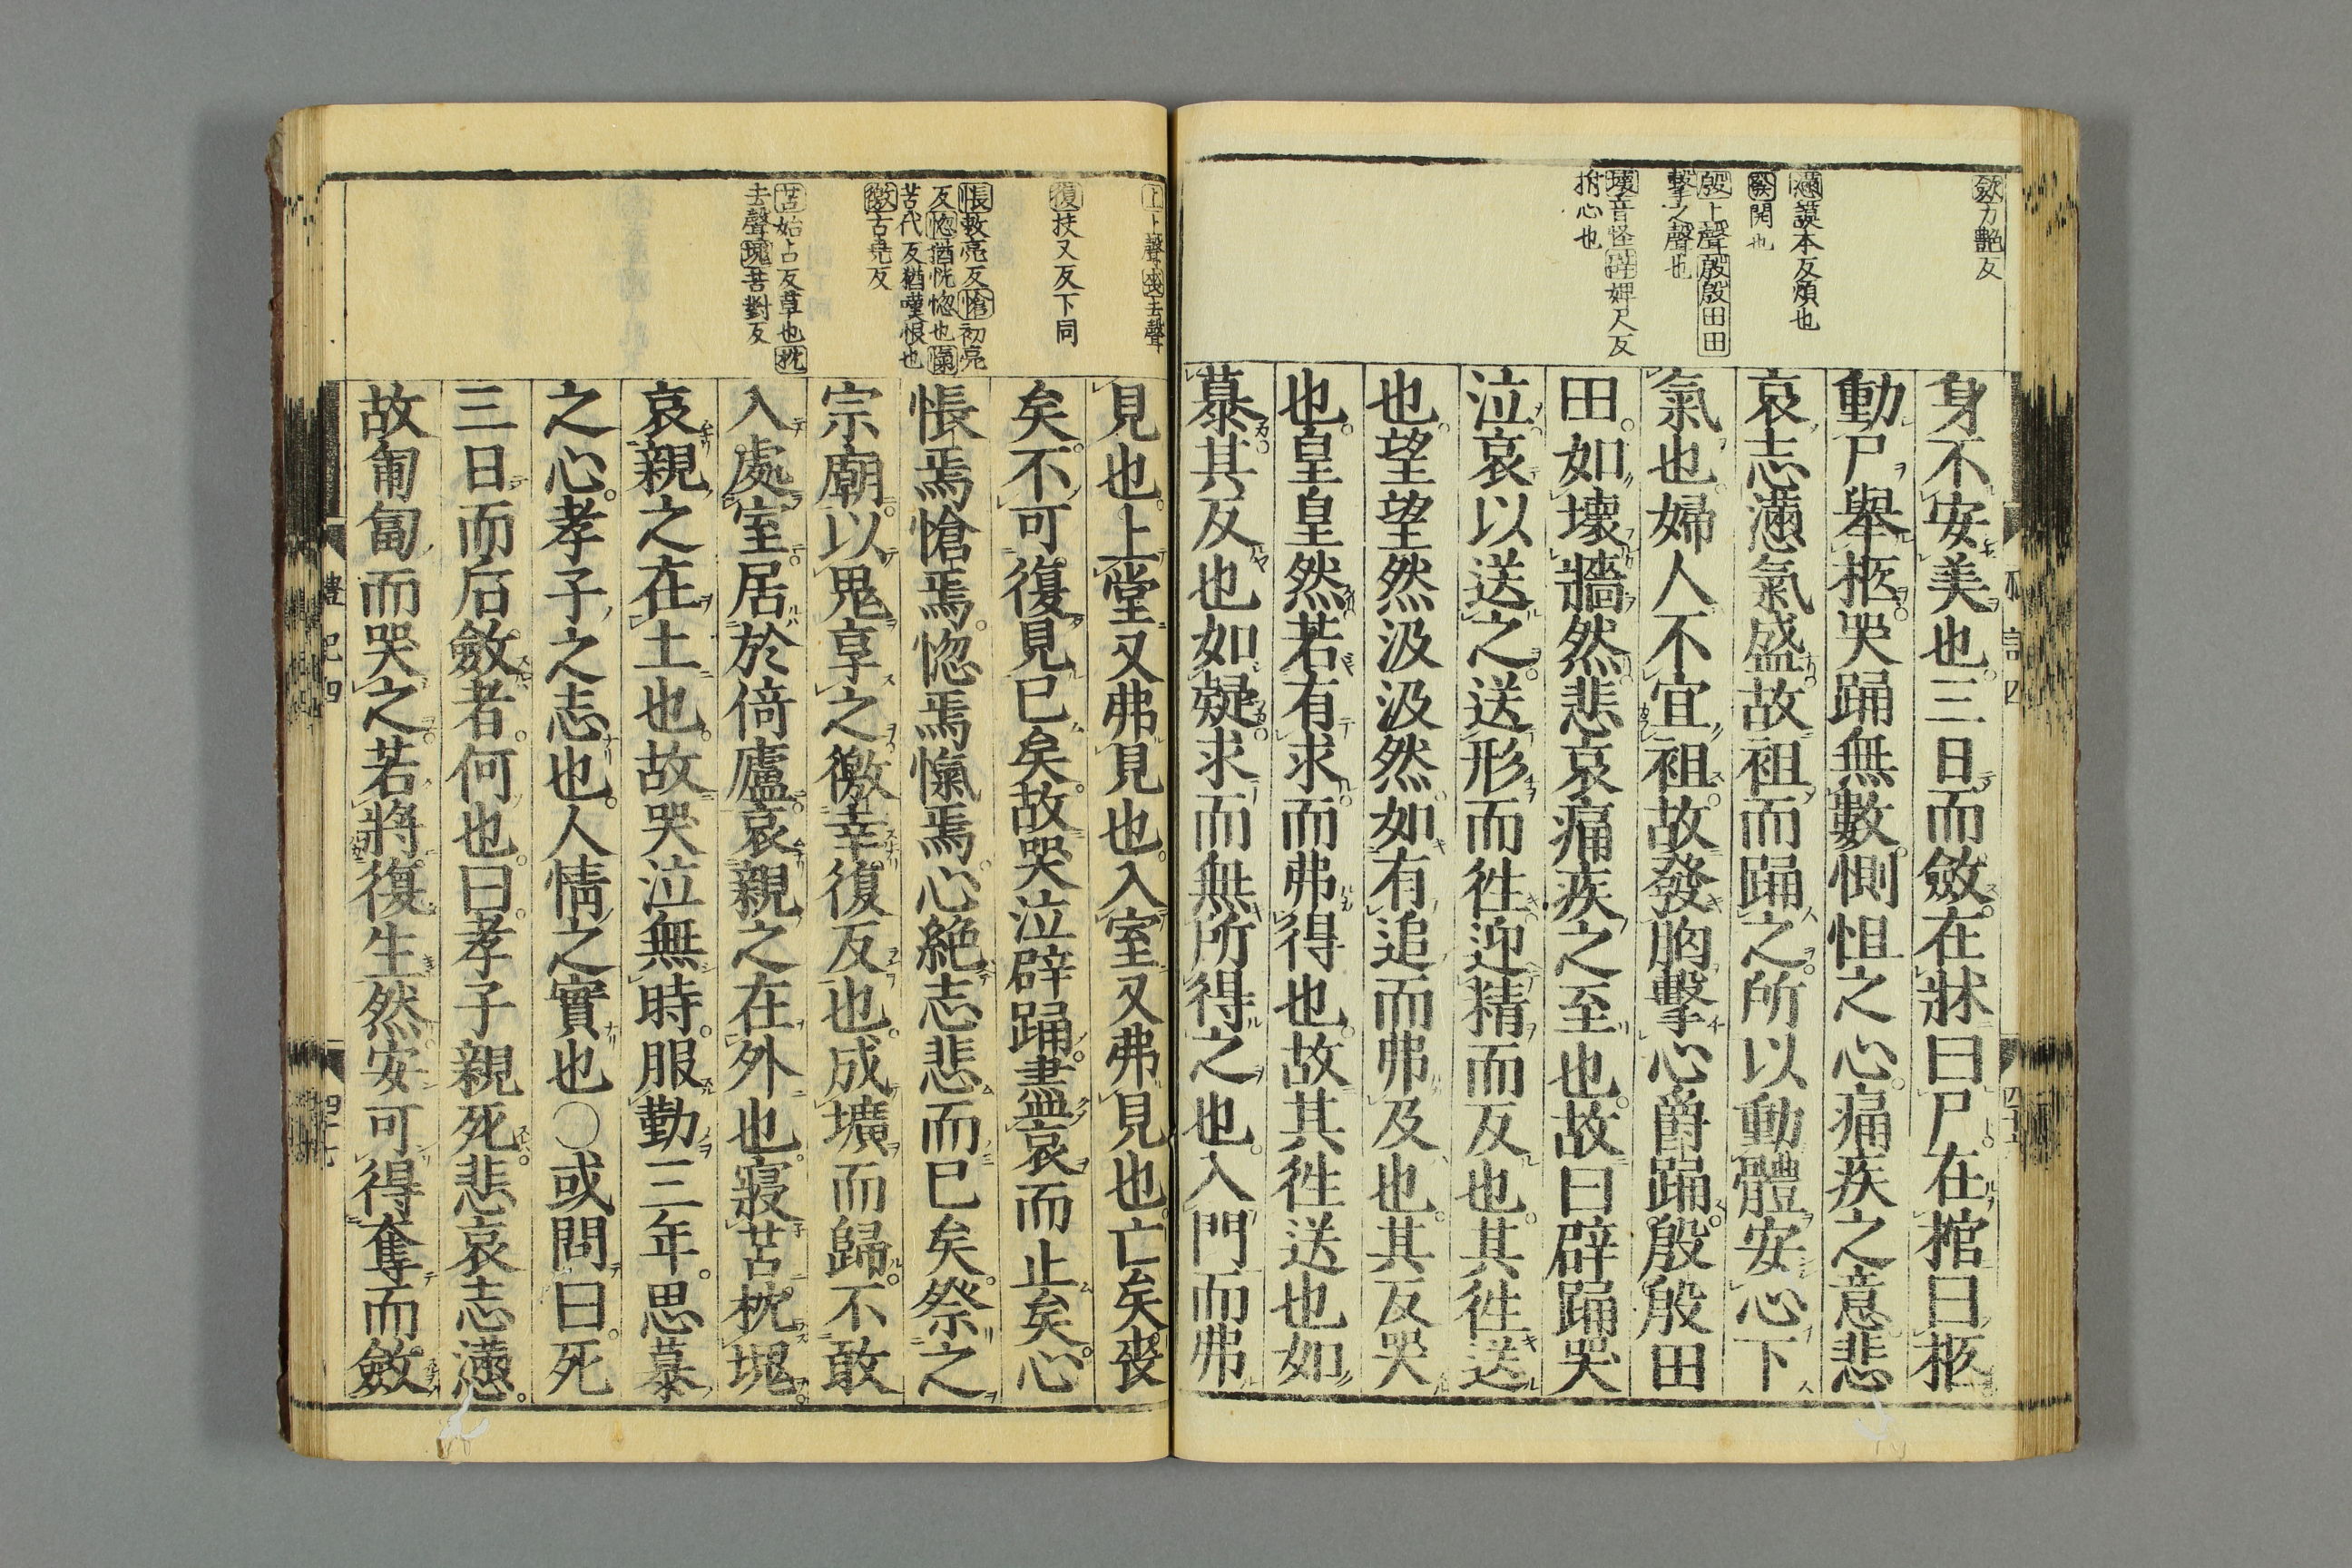 歛力艷反
懣謨本反煩也
發開也
殷上聲殷殷田田
擊之聲也
壞音怪辟婢尺反
拊心也
身不安美也三日而斂在牀曰尸在棺曰柩
動尸舉柩哭踊無數惻怛之心痛疾之意悲
哀志懣氣盛故袒而踊之所以動體安心下
氣也婦人不宜袒故發胸擊心爵踊殷殷田
田如壞牆然悲哀痛疾之至也故曰辟踊哭
泣哀以送之送形而徃迎精而反也其徃送
也望望然汲汲然如有追而弗及也其反哭
也皇皇然若有求而弗得也故其徃送也如
慕其反也如疑求而無所得之也入門而弗
上上聲喪去聲
復扶又反下同
悵敕亮反愴初亮
反惚猶恍惚也愾
苦代反猶嘆恨也
徼古堯反
苫始占反草也枕
去聲塊苦對反
見也上堂又弗見也入室又弗見也亡矣喪
矣不可復見已矣故哭泣辟踊盡哀而止矣心
悵焉愴焉惚焉愾焉心絶志悲而已矣祭之
宗廟以鬼享之徼幸復反也成壙而歸不敢
入處室居於倚廬哀親之在外也寢苫枕塊
哀親之在土也故哭泣無時服勤三年思慕
之心孝子之志也人情之實也〇或問曰死
三日而后斂者何也曰孝子親死悲哀志懣
故匍匐而哭之若將復生然安可得奪而斂
禮記四